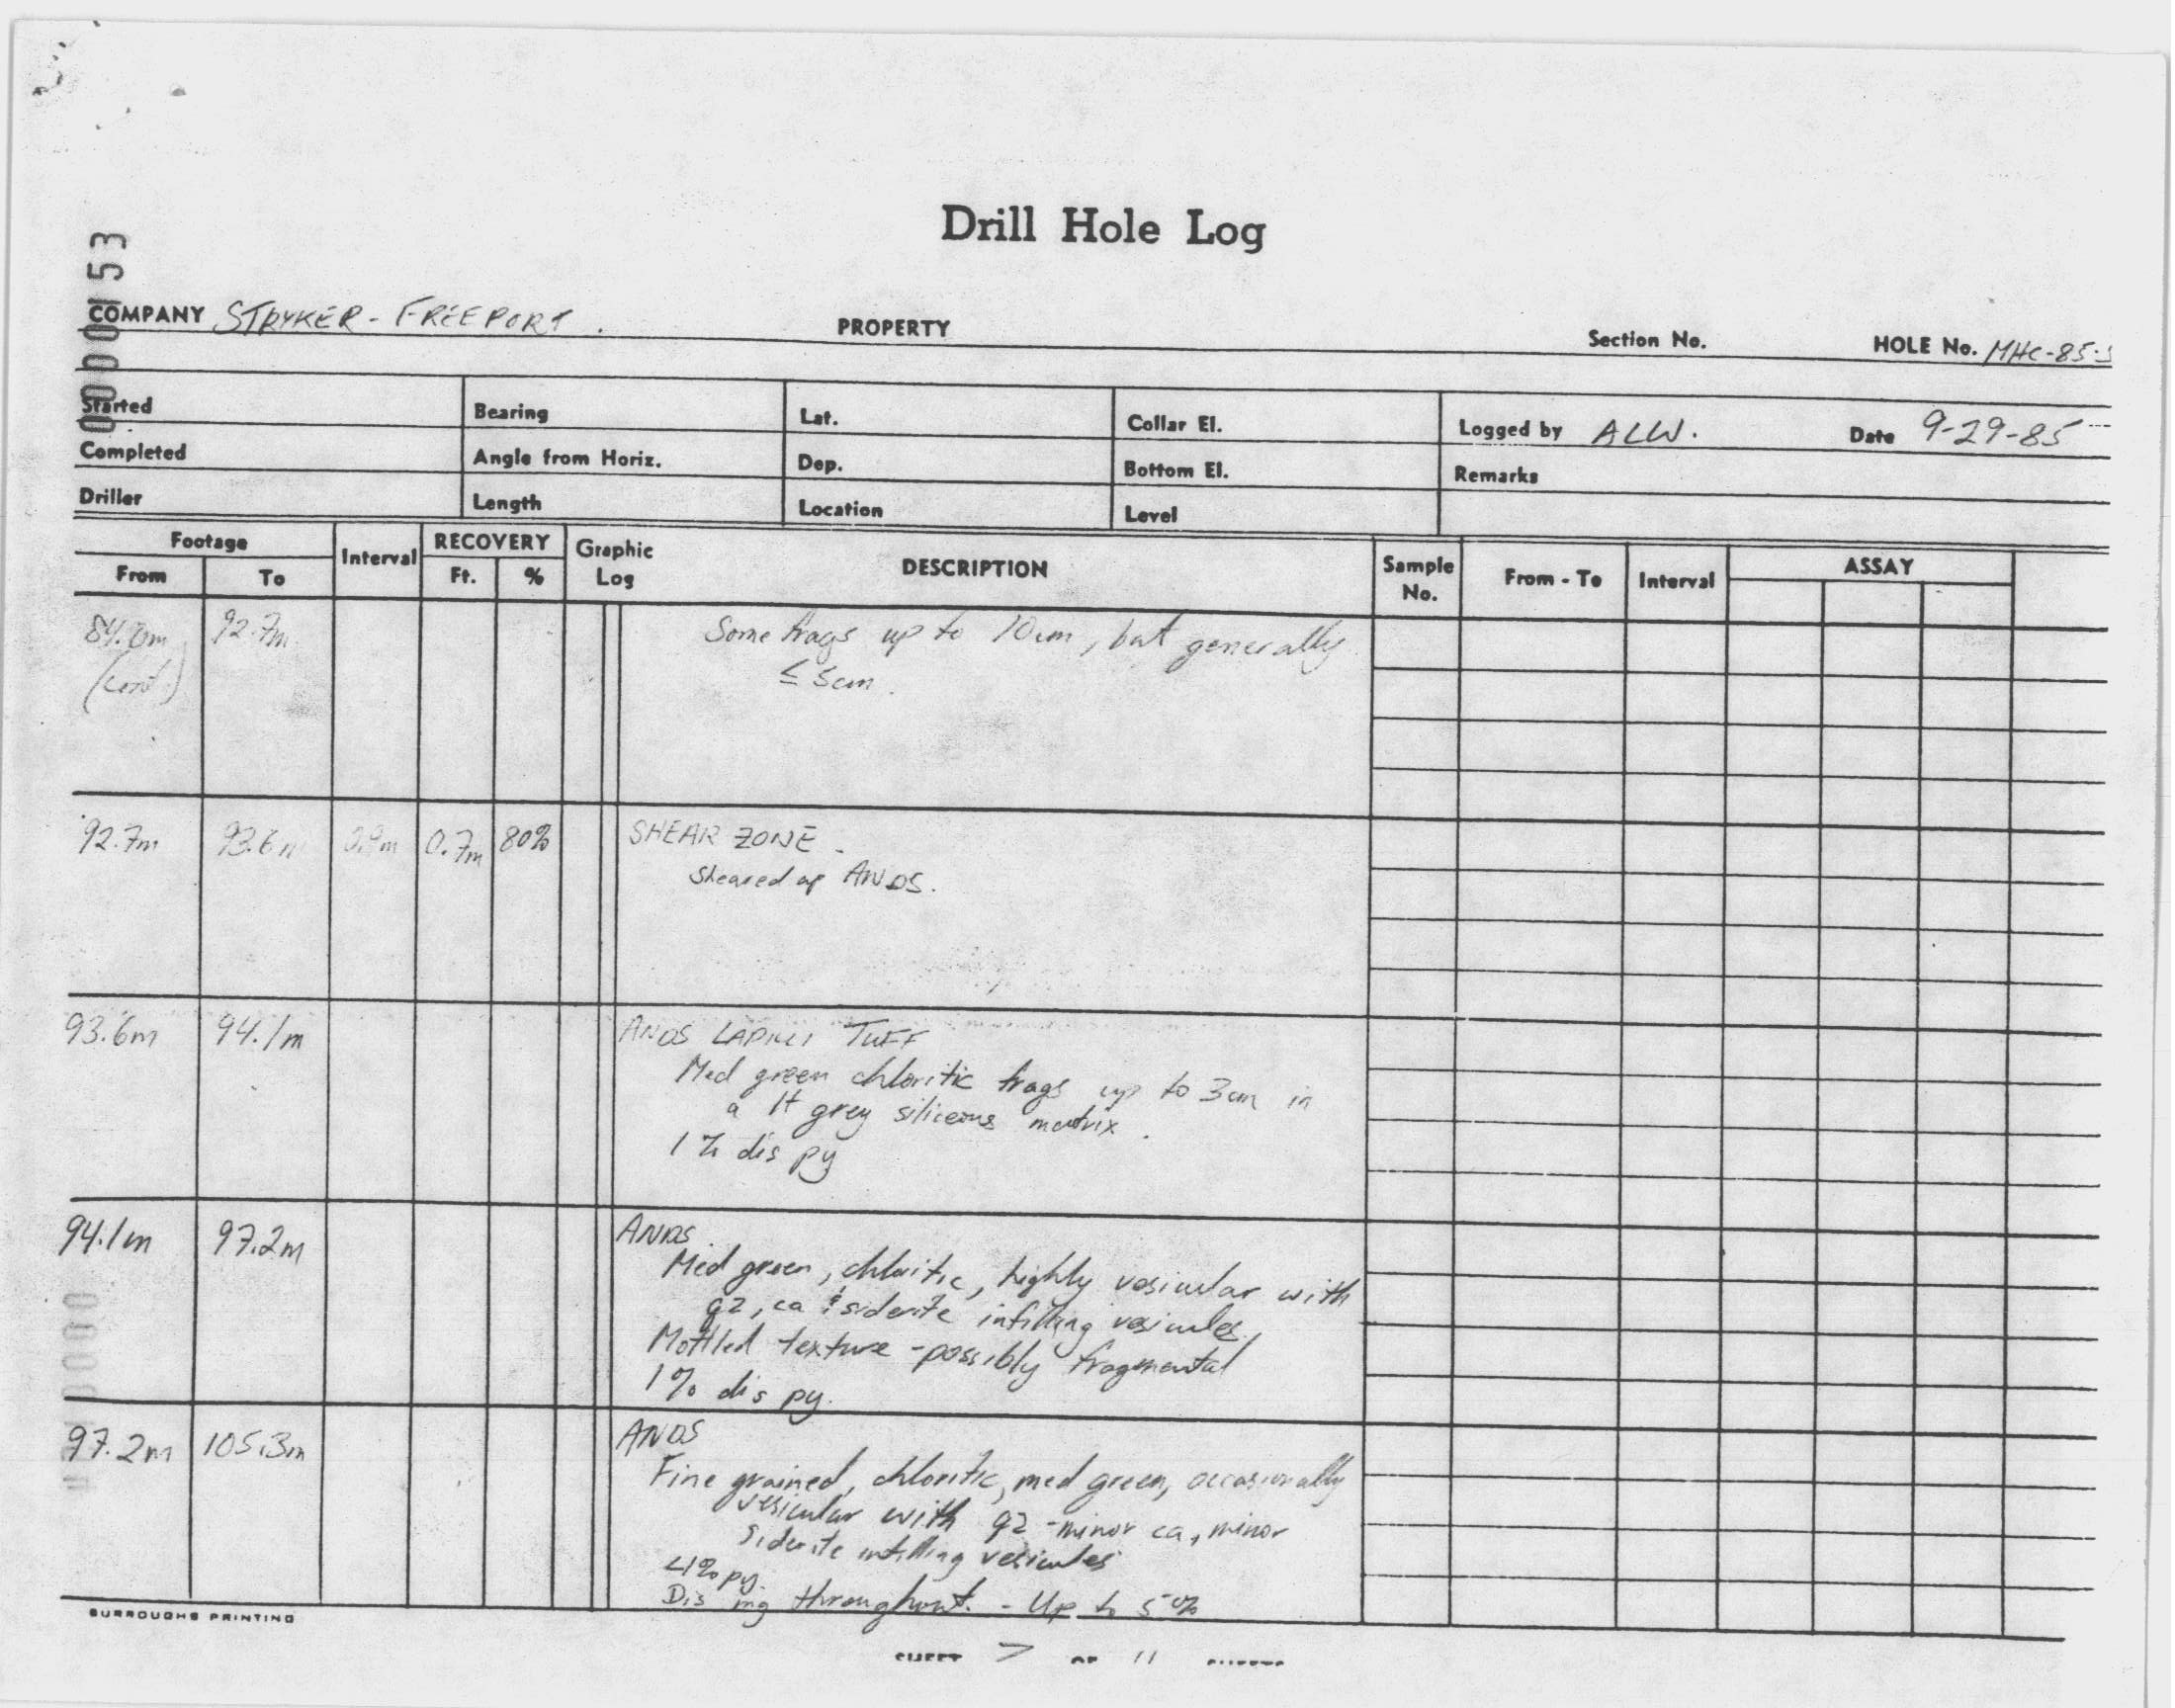 Drill Hole Log
0000153
COMPANY STRYKER - FREEPORT . PROPERTY Section No. HOLE No. MHC-85-
Started Bearing Lat. Collar El. Logged by ALW. Date 9-29-85
Completed Angle from Horiz. Dep. Bottom El. Remarks
Driller Length Location Level
Footage Interval RECOVERY Graphic Log DESCRIPTION Sample No. From - To Interval ASSAY
From To Ft. %
92.7m Some frags up to 10cm, but generally
(cont.) ≤ 5cm.
92.7m 93.6m 0.9m 0.7m 80% SHEAR ZONE.
Sheared up ANDS.
93.6m 94.1m ANDS LAPILLI TUFF
Med green chloritic frags up to 3cm in
a lt grey siliceous matrix.
1% dis py
94.1m 97.2m ANDS
Med green, chloritic, highly vesicular with
qz, ca & siderite infilling vesicules,
Mottled texture - possibly fragmental
1% dis py.
97.2m 105.3m ANDS
Fine grained, chloritic, med green, occasionally
vesicular with qz - minor ca, minor
siderite infilling vesicules
<1% py.
Dis mg throughout. - Up to 5%
BURROUGHS PRINTING
SHEET 7 OF 11 SHEETS